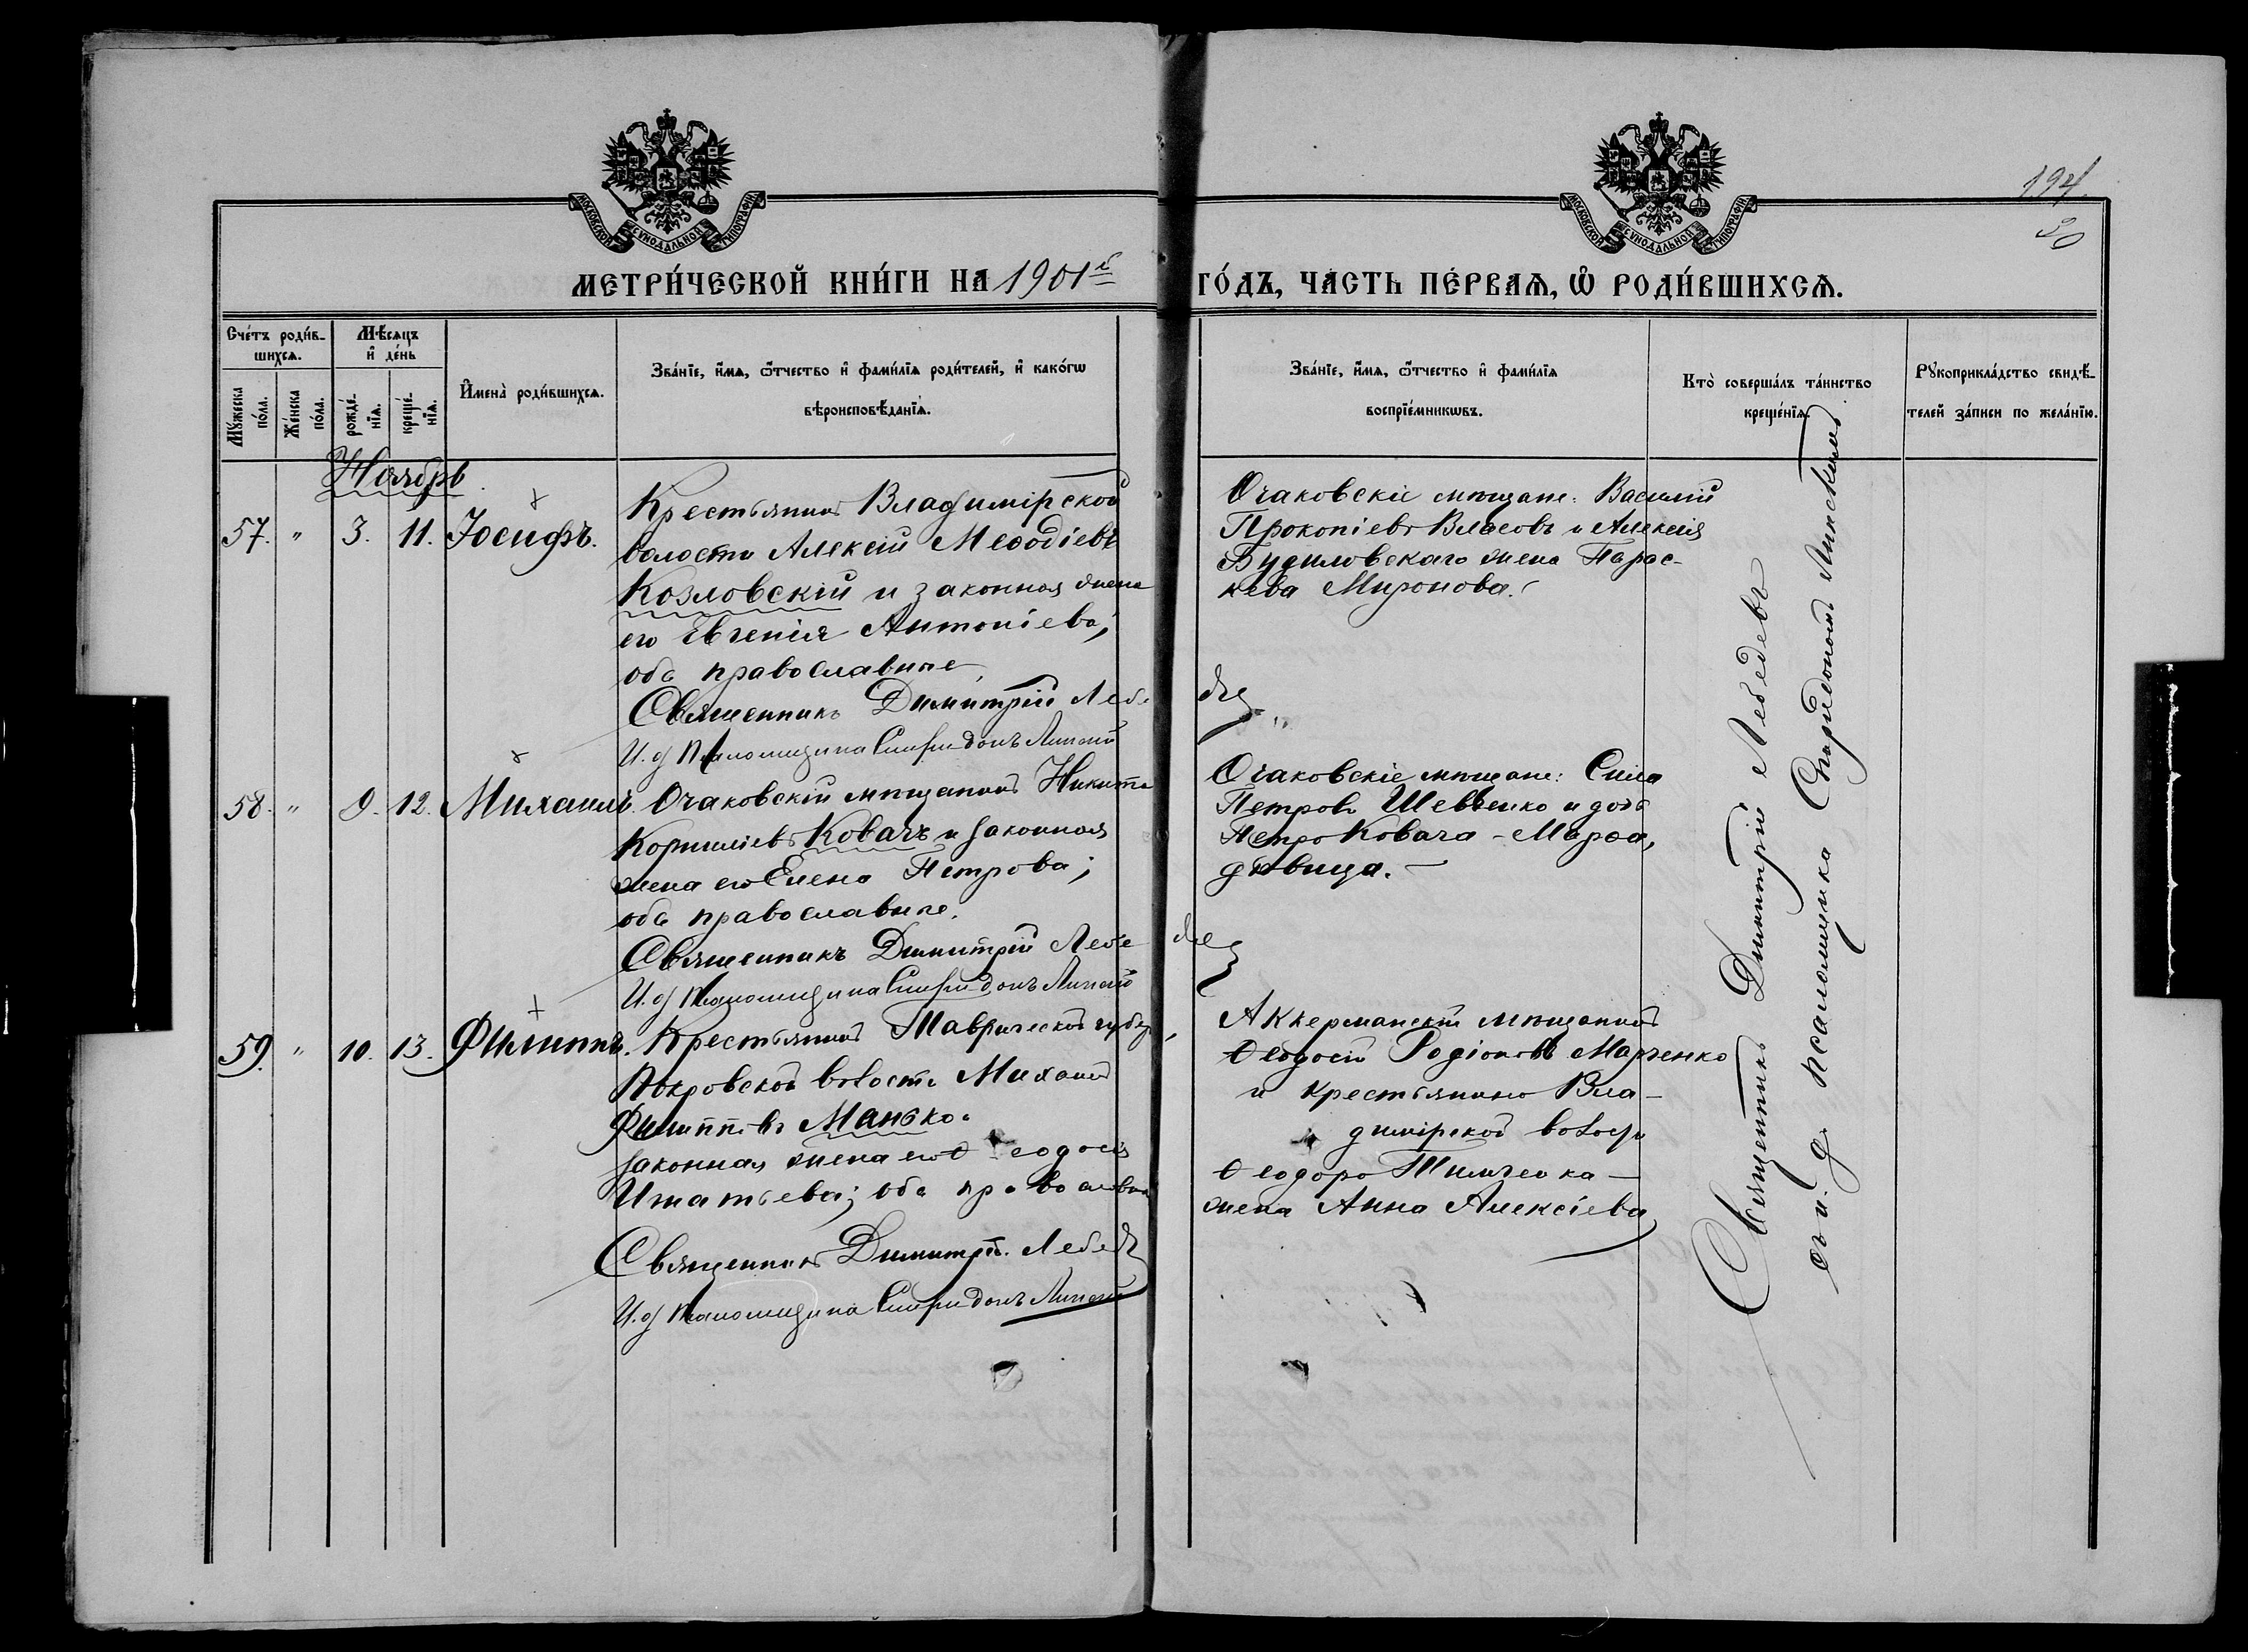 194
50
МОСКОВСКОЙ СУНОДАЛЬНОЙ ТИПОГРАФІИ
МОСКОВСКОЙ СУНОДАЛЬНОЙ ТИПОГРАФІИ
МЕТРИ́ЧЕСКОЙ КНИ́ГИ НА 1901й ГО́ДЪ, ЧА́СТЬ ПЕ́РВАѦ, Ѡ҆ РОДИ́ВШИХСѦ.
Сче́тъ роди́вшихсѧ.
Мꙋ́жеска по́ла.
Же́нска по́ла.
Мѣ́сѧцъ и҆ де́нь
рожде́нїѧ.
креще́нїѧ.
И҆мена̀ роди́вшихсѧ.
Зва́нїе, и҆́мѧ, ѻ҆́тчество и҆ фами́лїѧ роди́телей, и҆ како́гѡ
вѣроисповѣ́данїѧ.
Зва́нїе, и҆́мѧ, ѻ҆́тчество и҆ фами́лїѧ
воспрїе́мникѡвъ.
Кто̀ соверша́лъ та́инство
креще́нїѧ.
Рꙋкоприкла́дство свидѣ́-
телей за́писи по жела́нїю.
Ноябрь
57. " 3. 11. Іосифъ.
Крестьянинъ Владимірской
волости Алексій Меѳодіевъ
Козловскій и законная жена
его Евгенія Антоніева;
оба православные
Священникъ Димитрій Лебедев
И. д. псаломщика Спиридонъ Липскій
Очаковскіе мѣщане: Василій
Прокопіевъ Власовъ и Алексія
Будиловскаго жена Парас-
кева Миронова.
58. " 9. 12. Михаилъ.
Очаковскій мѣщанинъ Никита
Корниліевъ Ковачъ и законная
жена его Елена Петрова;
оба православные.
Священникъ Димитрій Лебедев
И. д. псаломщика Спиридонъ Липскій
Очаковскіе мѣщане: Сила
Петровъ Шевченко и дочь
Петра Ковача - Марѳа,
дѣвица. —
59. " 10. 13. Филиппъ.
Крестьянинъ Таврической губер.,
Покровской волости Михаилъ
Филипповъ Манько и
законная жена его Ѳеодосія
Игнатьева; оба православные
Священникъ Димитрій Лебедев
И. д. псаломщика Спиридонъ Липскій
Аккерманскій мѣщанинъ
Ѳеодосій Родіоновъ Марченко
и крестьянина Вла-
димірской волости
Ѳеодора Тимченка —
жена Анна Алексіева
Священникъ Димитрій Лебедевъ
съ и. д. псаломщика Спиридономъ Липскимъ